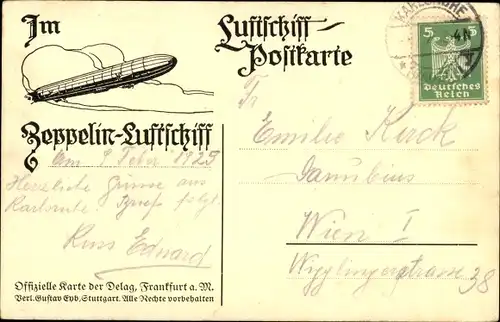 Im
Luftschiff-
Postkarte
Zeppelin-Luftschiff
KARLSRUHE
5 5
Deutsches
Reich
Am 9 Feber 1925
Herzliche Grüsse aus
Karlsruhe. Brief folgt.
Kuss Eduard
Fr
Emilie Kirck
Danubius
Wien I
38
Offizielle Karte der Delag, Frankfurt a. M.
Verl. Gustav Eyb, Stuttgart. Alle Rechte vorbehalten